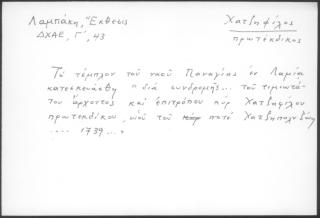 Λαμπάκη, Ἔκθεσις
ΔΧΑΕ, Γ', 43
Χατζηφίλος
πρωτέκδικος
Τό τέμπλον τοῦ ναοῦ Παναγίας ἐν Λαμίᾳ
κατεσκευάσθη "διά συνδρομῆς... τοῦ τιμιωτά-
του ἄρχοντος καί ἐπιτρόπου κύρ Χατζηφίλου
πρωτεκδίκου, υἱοῦ τοῦ ποτέ
.... 1739 ..."